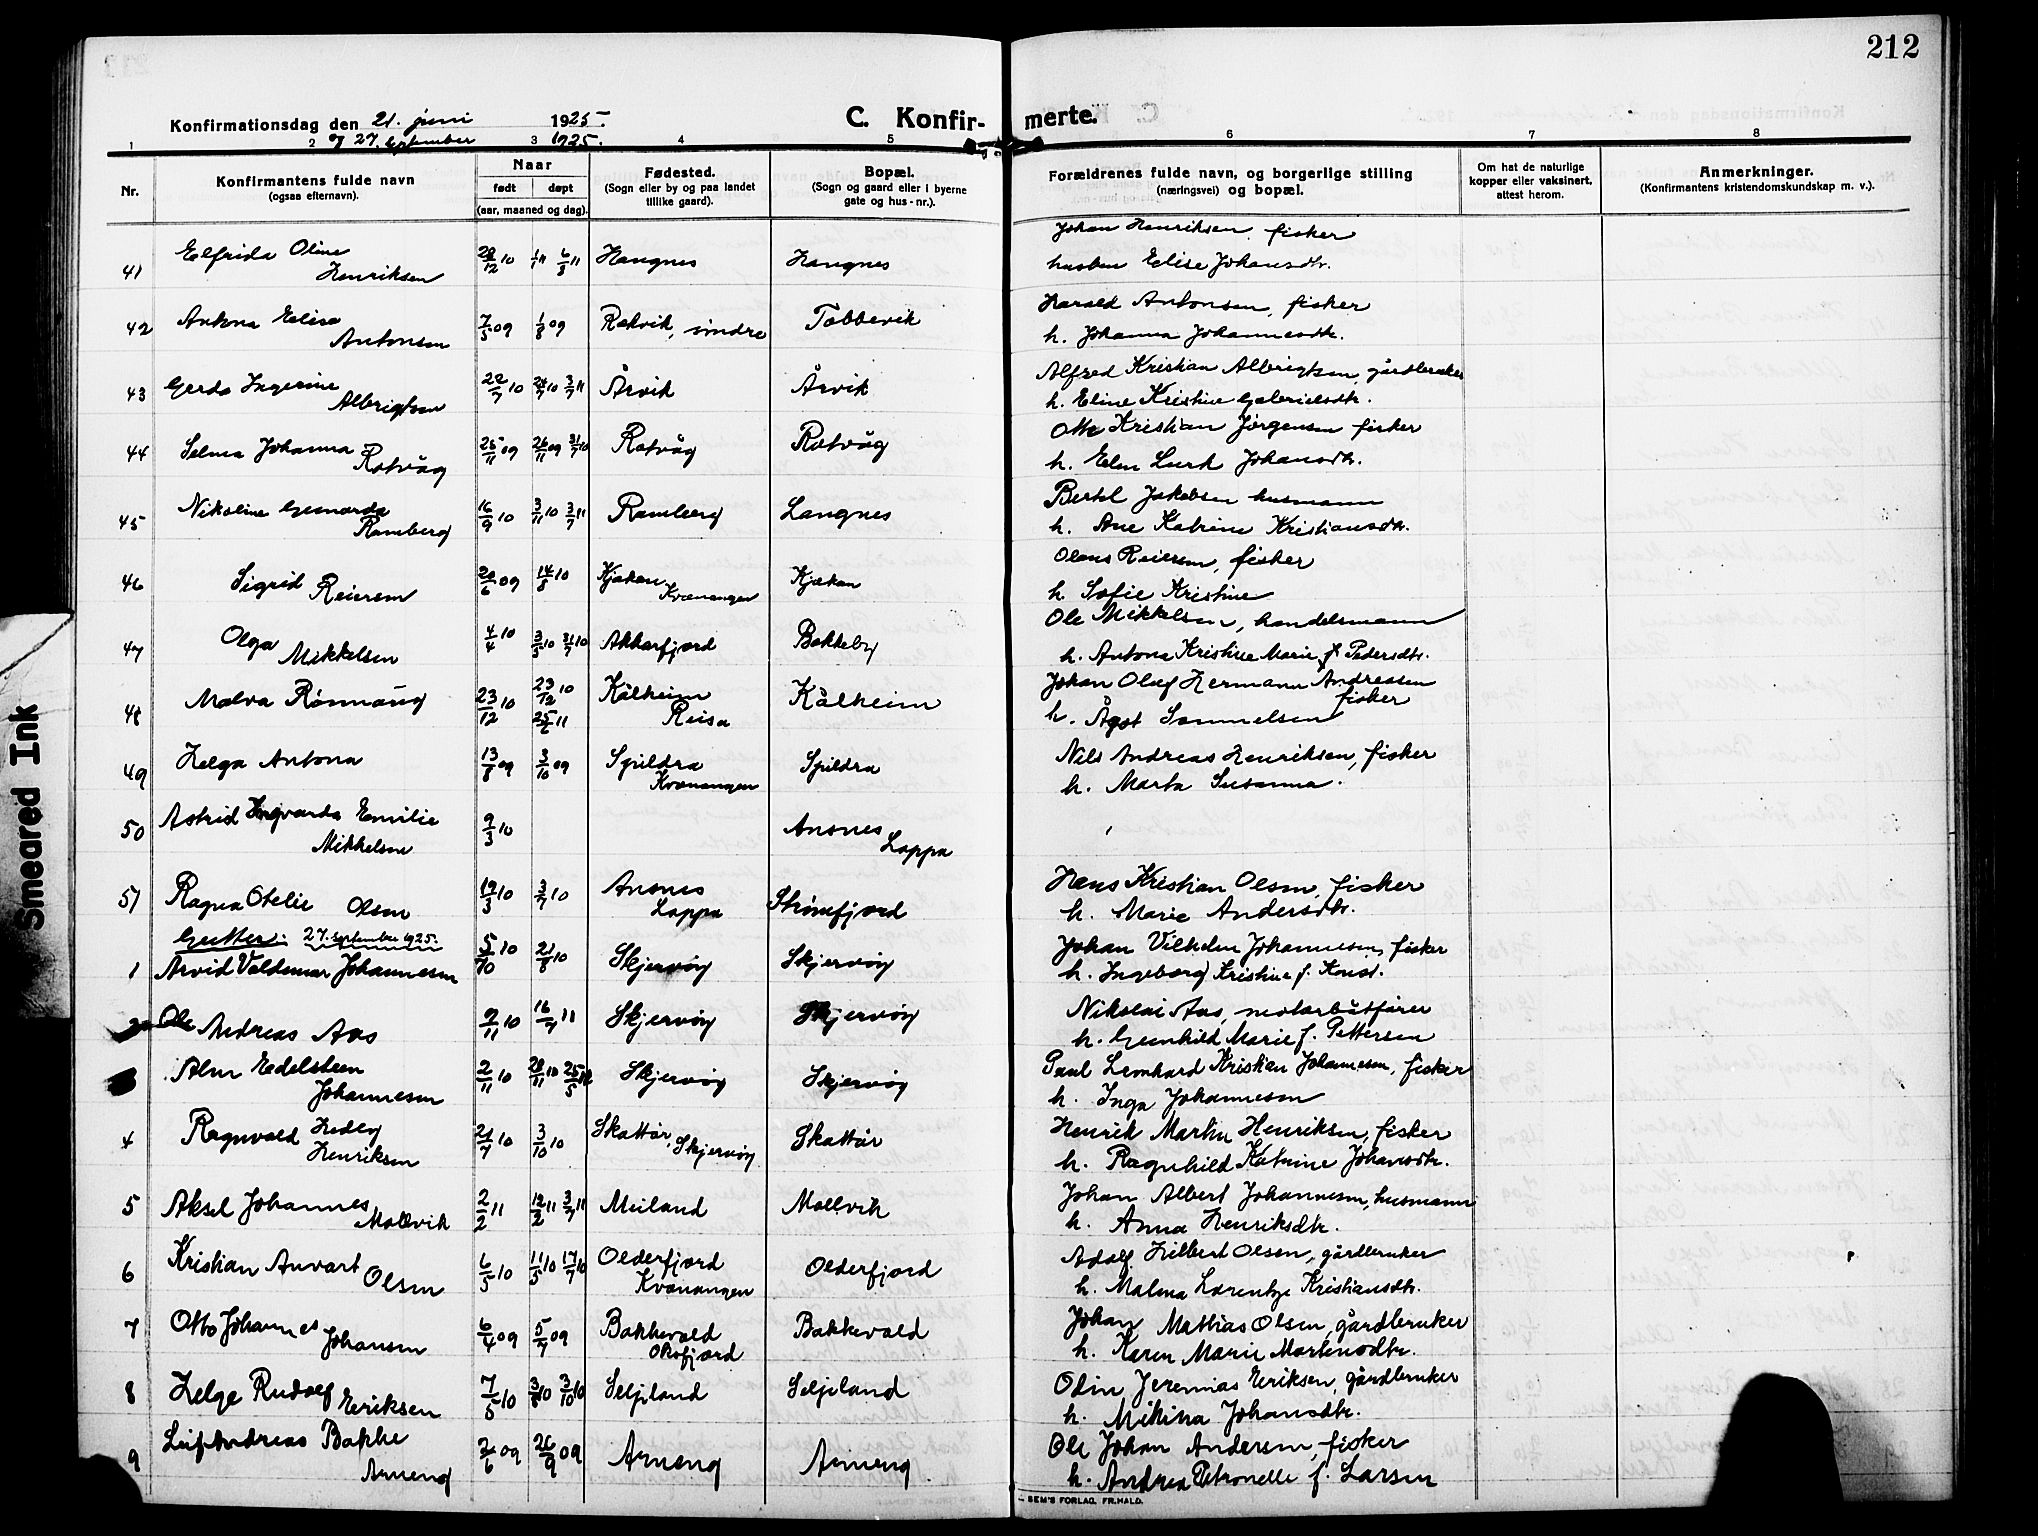 212
Konfirmationsdag den 21. juni 1925.
og 27. september 1925.
C. Konfirmerte.
1 2 3 4 5 6 7 8
Nr.
Konfirmantens fulde navn
(ogsaa efternavn).
Naar
født døpt
(aar, maaned og dag).
Fødested.
(Sogn eller by og paa landet
tillike gaard).
Bopæl.
(Sogn og gaard eller i byerne
gate og hus-nr.).
Forældrenes fulde navn, og borgerlige stilling
(næringsvei) og bopæl.
Om hat de naturlige
kopper eller vaksinert,
attest herom.
Anmerkninger.
(Konfirmantens kristendomskundskap m. v.).
41 Elfrida Oline Henriksen 28/12 10 1/1 11 6/8 11 Haugnes Haugnes Johan Henriksen, fisker
hustru Elise Johansdtr.
42 Antona Elise Antonsen 7/5 09 1/8 09 Rakvik, indre Tobbevik Harald Antonsen, fisker
h. Johanna Johannesdtr.
43 Gerda Ingerine Albrigtsen 22/7 10 24/7 10 3/7 11 Årvik Årvik Alfred Kristian Albrigtsen, gårdbruker
h. Eline Kristine Gabrielsdtr.
44 Selma Johanna Rotvåg 25/11 09 26/11 09 31/7 10 Rotvåg Rotvåg Otto Kristian Jørgensen fisker
h. Johansdtr.
45 Nikoline Ramberg 16/9 10 3/11 10 3/7 11 Ramberg Langnes Bertel Jakobsen husmann
h. Ane Katrine Kristiansdtr.
46 Sigrid Reiersen 20/6 09 14/8 10 Kjækan Kvænangen Kjækan Olaus Reiersen, fisker
h. Sofie Kristine
47 Olga Mikkelsen 4/4 10 3/5 10 31/7 10 Akkarfjord Bakkeby Ole Mikkelsen, handelsmann
h. Antona Kristine Marie f. Pedersdtr.
48 Malva Rønnaug 23/12 10 23/12 10 25/6 11 Kålheim Reisa Kålheim Johan Oluf Hermann Andreasen fisker
h. Ågot Samuelsen
49 Helga Antona 13/8 09 3/10 09 Spildra Kvænangen Spildra Nils Andreas Henriksen, fisker
h. Marta Susanna.
50 Astrid Ingvarda Emilie Mikkelsen 9/3 10 Ansnes Loppa
51 Ragna Otelie Olsen 19/3 10 3/7 10 Ansnes Loppa Strømfjord Hans Kristian Olsen, fisker
h. Marie Andersdtr.
Gutter: 27. september 1925.
1 Arvid Valdemar Johannesen 5/10 10 21/8 10 Skjervøy Skjervøy Johan Vilhelm Johannesen, fisker
h. Ingeborg Kristine f. Knut.
Ole Andreas Aas 9/11 10 16/7 11 Skjervøy Skjervøy Nikolai Aas, motorbåtfører
h. Gunhild Marie f. Pettersen
Alm Edelsteen Johannesen 2/11 10 28/11 10 Skjervøy Skjervøy Paul Leonhard Kristian Johannesen, fisker
h. Inga Johannesen
4 Ragnvald Hedley Henriksen 24/7 10 3/10 10 Skattør, Skjervøy Skattør Henrik Martin Henriksen, fisker
h. Ragnhild Katrine Johansdtr.
5 Aksel Johannes Mollvik 2/2 11 12/2 11 3/7 11 Meiland Mollvik Johan Albert Johannesen, husmann
h. Anna Henriksdtr.
6 Kristian Anvart Olsen 6/5 10 11/5 10 17/7 10 Olderfjord Kvænangen Olderfjord Adolf Hilbert Olsen, gårdbruker
h. Malma Lorentze Kristiansdtr.
7 Otto Johannes Johansen 6/4 09 5/7 09 Bakkevold Oksfjord Bakkevold Johan Mathias Olsen, gårdbruker
h. Karen Marie Martinsdtr.
8 Helge Rudolf Eeriksen 7/5 10 3/8 10 3/10 10 Seljeland Seljeland Odin Jeremias Eeriksen, gårdbruker
h. Mikina Johansdtr.
9 Leif Andreas Bakke Arneng 2/6 09 26/9 09 Arneng Arneng Ole Johan Andersen, fisker
h. Andrea Petronelle f. Larsen
SEM'S FORLAG, FR.HALD.
Smeared Ink